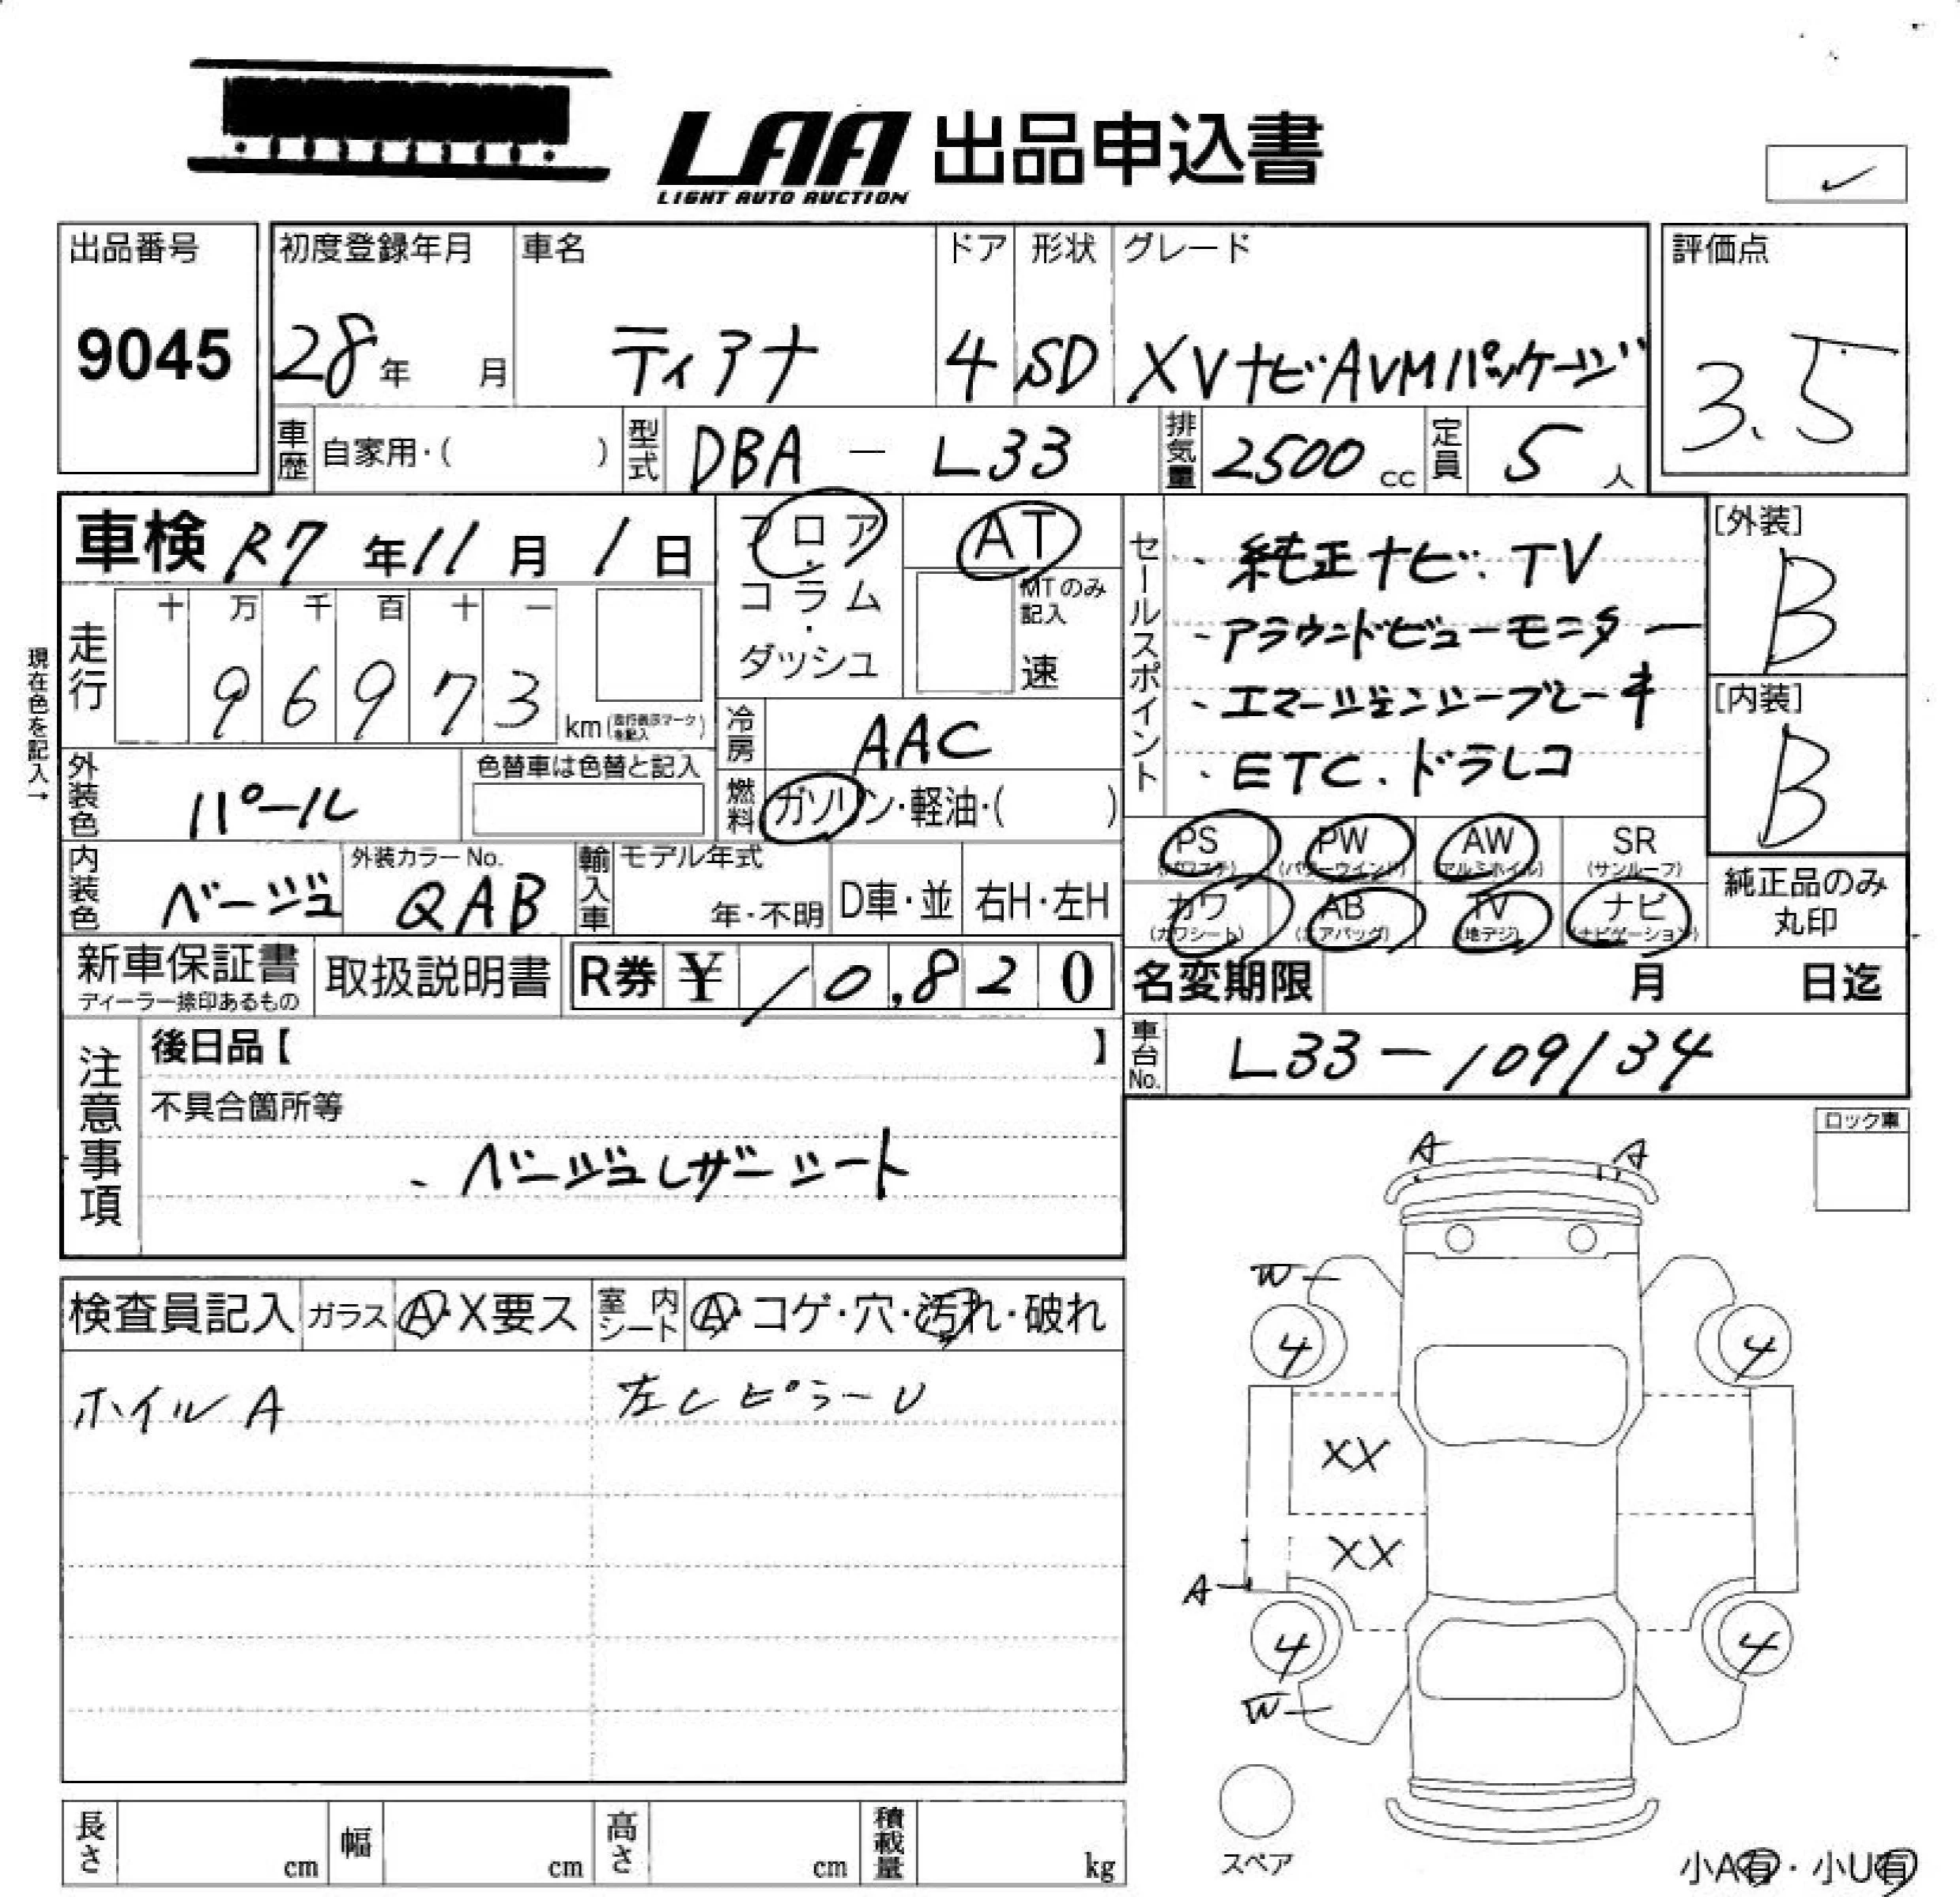 LAA 出品申込書
LIGHT AUTO AUCTION
出品番号 9045
初度登録年月 28年 月
車名 ティアナ
ドア 4
形状 SD
グレード XVナビAVMパッケージ
評価点 3.5
車歴 自家用・( )
型式 DBA - L33
排気量 2500 cc
定員 5 人
車検 R7年11月1日
フロア・コラム・ダッシュ
AT
MTのみ記入
速
セールスポイント
・純正ナビ.TV
・アラウンドビューモニター
・エマージェンシーブレーキ
・ETC.ドラレコ
[外装] B
[内装] B
現在色を記入→
走行 十 万 千 百 十 一
96973 km(走行表示マークを記入)
冷房 AAC
外装色 パール
色替車は色替と記入
燃料 ガソリン・軽油・( )
PS (パワステ) PW (パワーウインド) AW (アルミホイル) SR (サンルーフ)
カワ (カワシート) AB (エアバッグ) TV (地デジ) ナビ (ナビゲーション)
純正品のみ丸印
内装色 ベージュ
外装カラーNo. QAB
輸入車
モデル年式 年・不明
D車・並
右H・左H
新車保証書
ディーラー捺印あるもの
取扱説明書
R券 ¥10,820
名変期限 月 日迄
車台No. L33-109134
注意事項
後日品【 】
不具合箇所等
・ベージュレザーシート
ロック車
検査員記入 ガラス A・X要ス 室内シート A・コゲ・穴・汚れ・破れ
ホイル A
左Cピラー U
A A
W
4 4
XX
XX
A
4 4
W
スペア
長さ cm 幅 cm 高さ cm 積載量 kg
小A有・小U有